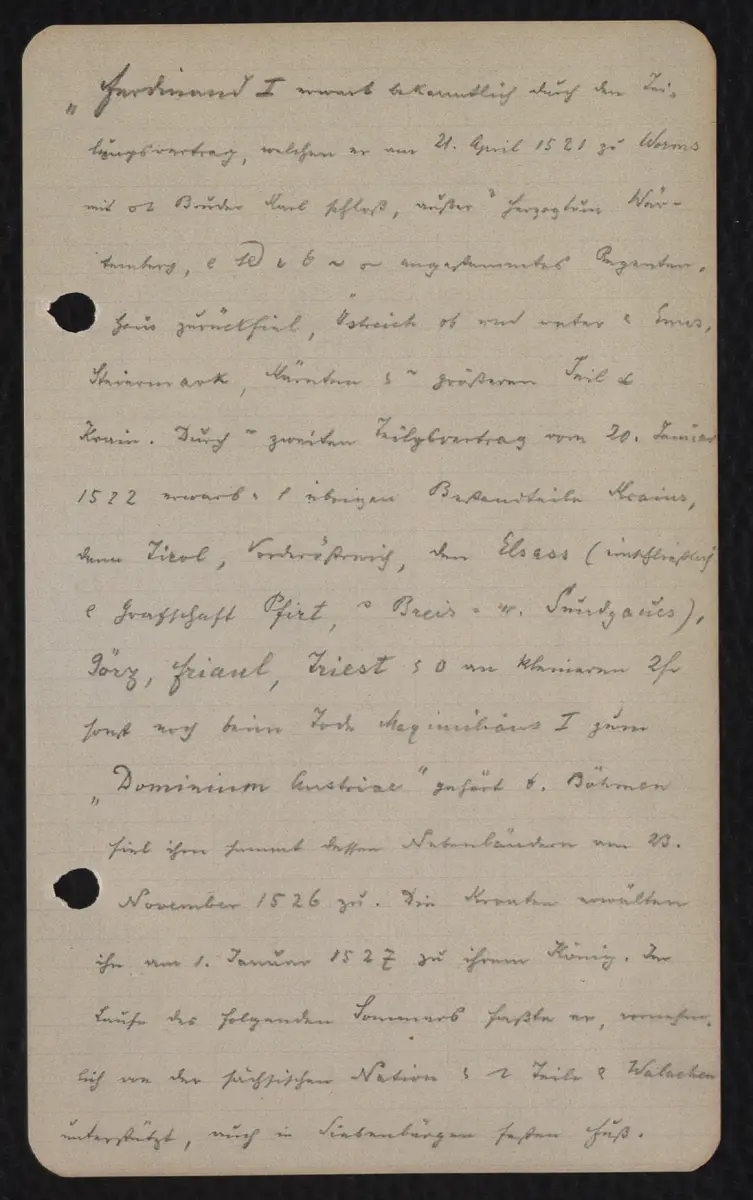 „Ferdinand I erwarb bekanntlich durch den Tei-
lungsvertrag, welchen er am 21. April 1521 zu Worms
mit Bruder Karl schloß, außer Herzogtum Wür-
temberg, angestammtes Regenten-
haus zurückfiel, Östreich ob und unter Enns,
Steiermark, Kärnten größeren Teil
Krain. Durch zweiten Teilgsvertrag vom 20. Januar
1522 erwarb übrigen Bestandteile Krains,
dann Tirol, Vorderöstreich, den Elsass (einschließlich
Grafschaft Pfirt, Breis- u. Sundgaues),
Görz, Friaul, Triest an kleineren
sonst noch beim Tode Maximilians I zum
„Dominium Austriae" gehört Böhmen
fiel ihm sammt dessen Nebenländern am 23.
November 1526 zu. Die Kroaten erwälten
ihn am 1. Januar 1527 zu ihrem König. Im
Laufe des folgenden Sommers faßte er, vornehm-
lich von der sächsischen Nation Teile Walachen
unterstützt, auch in Siebenbürgen festen Fuß.